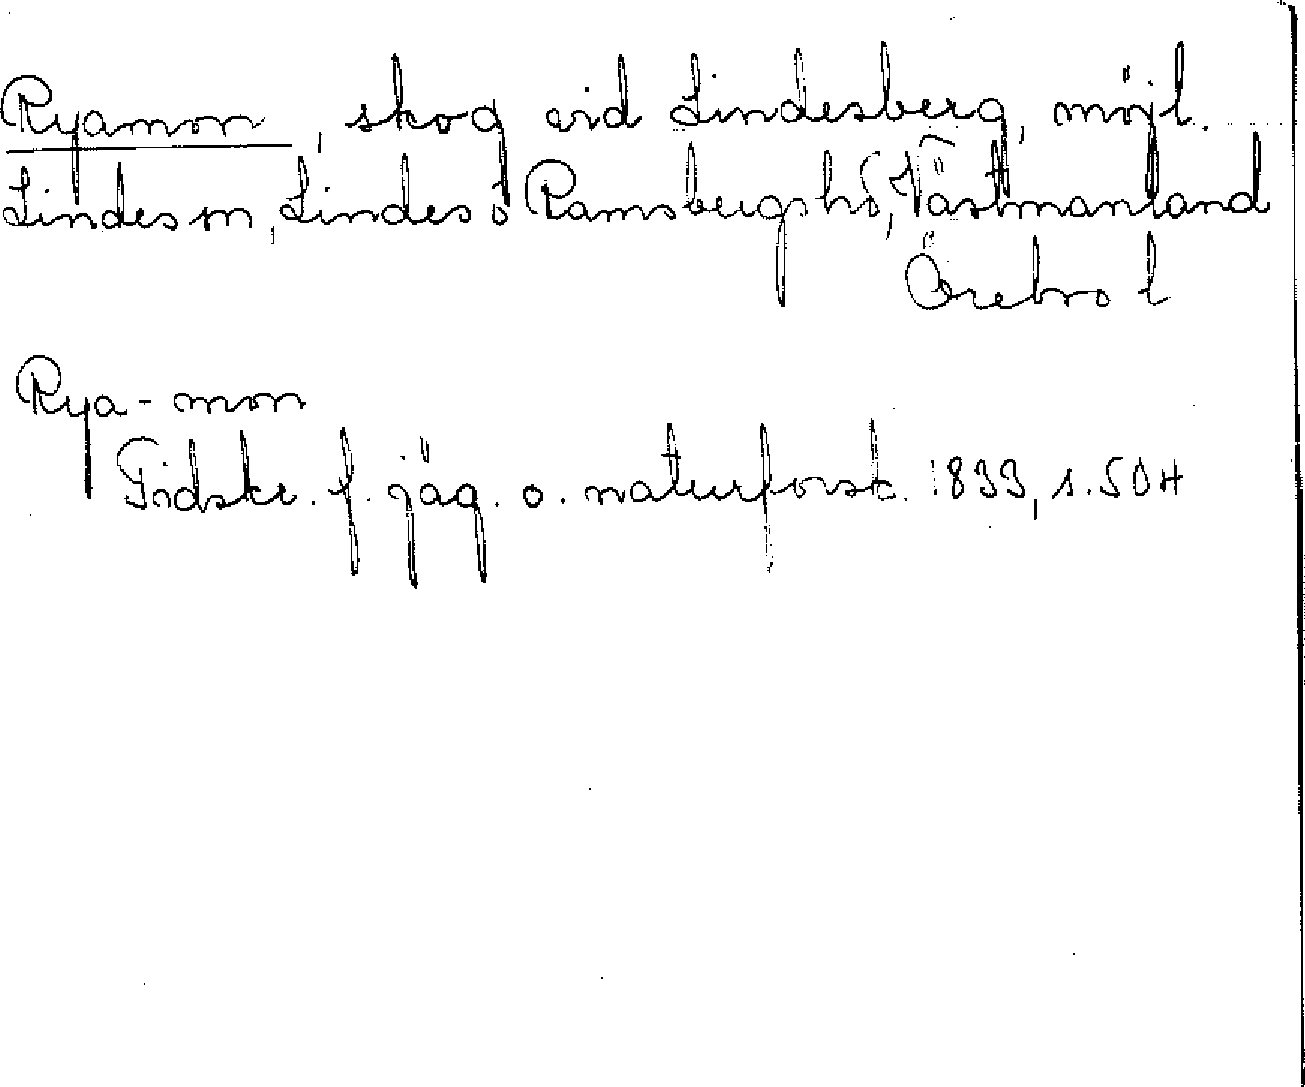 Ryamon, skog vid Lindesberg, möjl.
Lindes sn, Lindes o Ramsbergs hd, Västmanland
Örebro l
Rya-mon
Tidskr. f. jäg. o. naturforsk. 1833, s. 504